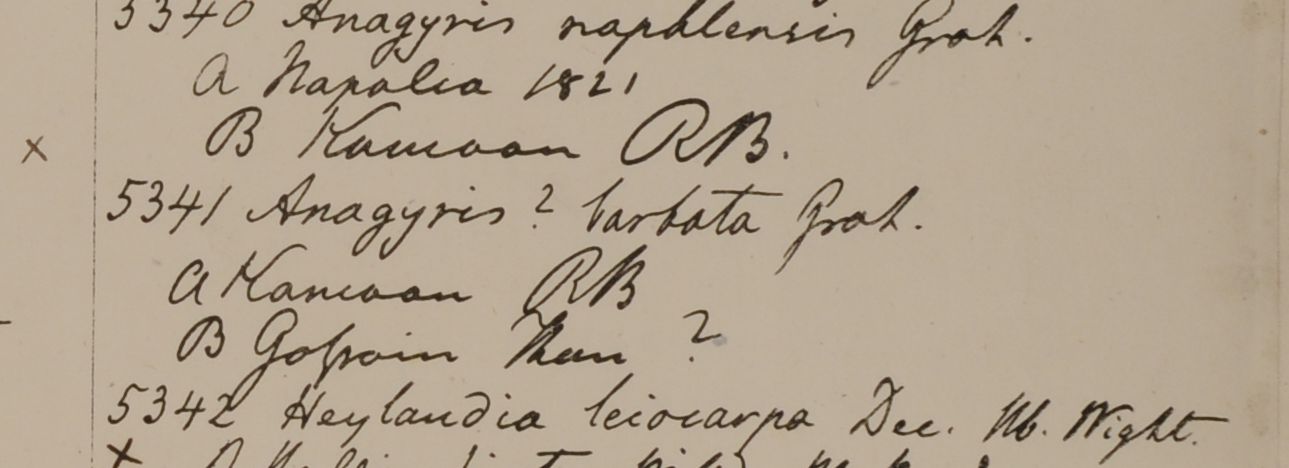 5340 Anagyris napalensis Grah.
A Napalia 1821
B Kamaoon RB.
x
5341 Anagyris? barbata Grah.
A Kamaoon RB
B Gossain Than ?
5342 Heylandia leiocarpa Dec. Hb. Wight.
x